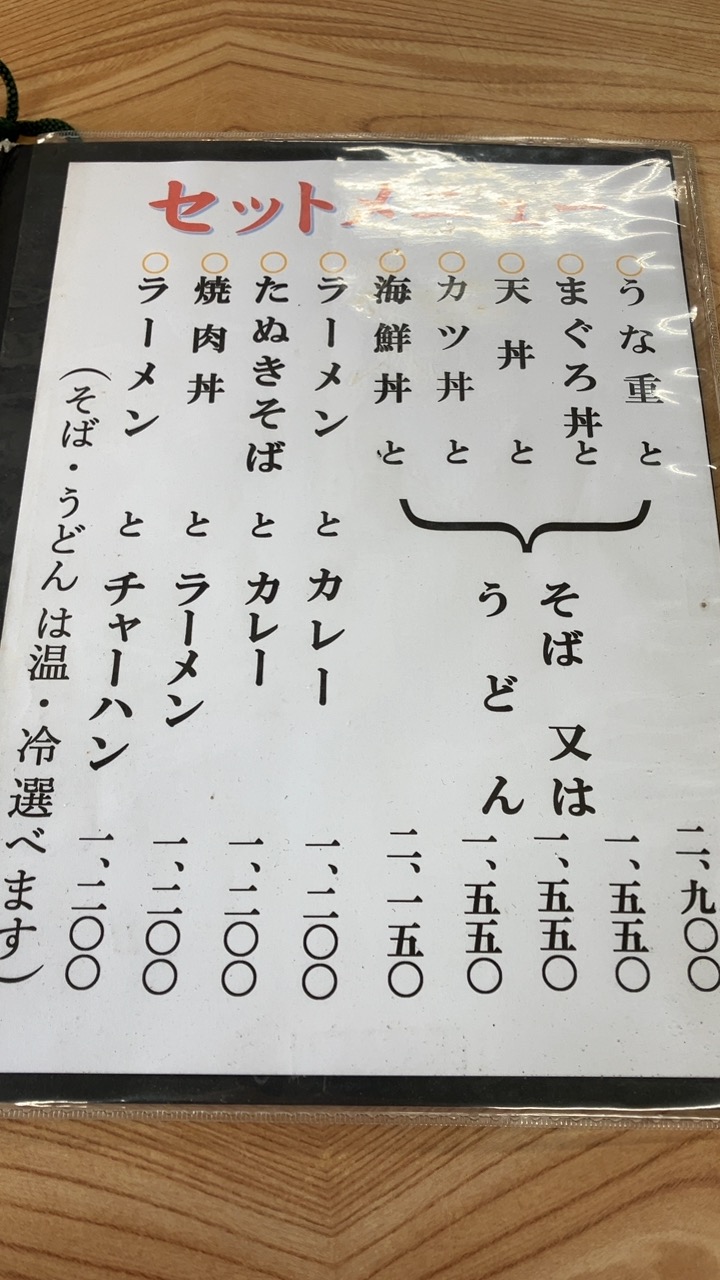 セットメニュー
○うな重と
○まぐろ丼と
○天丼と
○カツ丼と
○海鮮丼と
そば又は
うどん
二、九〇〇
一、五五〇
一、五五〇
一、五五〇
二、一五〇
○ラーメンとカレー 一、二〇〇
○たぬきそばとカレー 一、二〇〇
○焼肉丼とラーメン 一、二〇〇
○ラーメンとチャーハン 一、二〇〇
（そば・うどんは温・冷選べます）